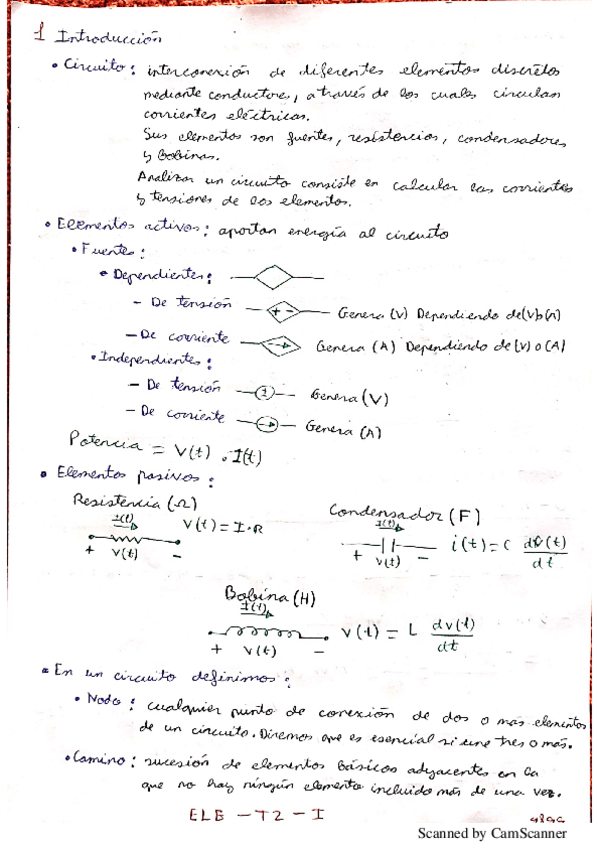 1 Introducción
• Circuito: interconexión de diferentes elementos discretos
mediante conductores, a través de los cuales circulan
corrientes eléctricas.
Sus elementos son fuentes, resistencias, condensadores
y bobinas.
Analizar un circuito consiste en calcular las corrientes
y tensiones de los elementos.
• Elementos activos: aportan energía al circuito
• Fuentes:
• Dependientes:
- De tensión + - Genera (V) Dependiendo de (V) o (A)
- De corriente Genera (A) Dependiendo de (V) o (A)
• Independientes:
- De tensión Genera (V)
- De corriente Genera (A)
Potencia = V(t) . I(t)
• Elementos pasivos:
Resistencia (Ω)
I(t)
V(t) = I·R
+ V(t) -
Condensador (F)
I(t)
i(t) = C dv(t)/dt
+ V(t) -
Bobina (H)
I(t)
V(t) = L dv(t)/dt
+ V(t) -
• En un circuito definimos:
• Nodo: cualquier punto de conexión de dos o más elementos
de un circuito. Diremos que es esencial si une tres o más.
• Camino: sucesión de elementos básicos adyacentes en la
que no hay ningún elemento incluido más de una vez.
ELE - T2 - I
Scanned by CamScanner